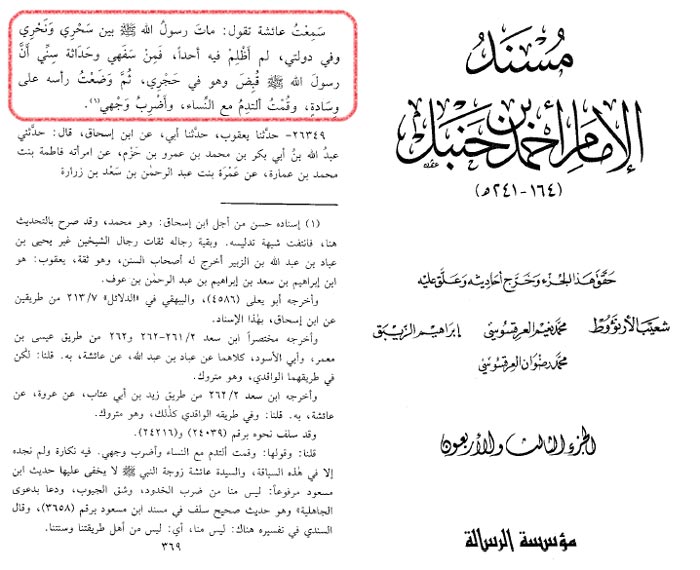 مُسْنَدُ
الإِمَامِ أَحْمَدَ بْنِ حَنْبَلٍ
(١٦٤-٢٤١ هـ)
حَقَّقَ هٰذَا الجُزْءَ وَخَرَّجَ أَحَادِيثَهُ وَعَلَّقَ عَلَيْهِ
شعَيْبُ الأرْنَؤُوط محمّد نعيم العرقسُوسي إبراهيم الزيبق
محمّد رضوان العرقسُوسي
الجزء الثالث والأربعون
مؤسسة الرسالة
سَمِعْتُ عائشةَ تقول: ماتَ رسولُ الله ﷺ بين سَحْرِي ونَحْرِي
وفي دولتي، لم أَظْلِمْ فيه أحداً، فَمِنْ سَفَهي وحَدَاثة سِنِّي أَنَّ
رسولَ الله ﷺ قُبِضَ وهو في حَجْرِي، ثُمَّ وَضَعْتُ رأسه على
وِسَادةٍ، وقُمْتُ أَلْتَدِمُ مع النِّساء، وأضرِبُ وَجْهي(١).
٢٦٣٤٩- حدَّثنا يعقوب، حدَّثنا أبي، عن ابن إسحاق، قال: حدَّثني
عبدُ الله بنُ أبي بكر بن محمد بن عمرو بن حَزْم، عن امرأته فاطمة بنت
محمد بن عمارة، عن عَمْرَة بنت عبد الرحمٰن بن سَعْد بن زرارة
(١) إسناده حسن من أجل ابن إسحاق: وهو محمد، وقد صرح بالتحديث
هنا، فانتفت شبهة تدليسه. وبقية رجاله ثقات رجال الشيخين غير يحيى بن
عباد بن عبد الله بن الزبير أخرج له أصحاب السنن، وهو ثقة، يعقوب: هو
ابن إبراهيم بن سعد بن إبراهيم بن عبد الرحمٰن بن عوف.
وأخرجه أبو يعلى (٤٥٨٦)، والبيهقي في «الدلائل» ٢١٣/٧ من طريقين
عن ابن إسحاق، بهٰذا الإسناد.
وأخرجه مختصراً ابن سعد ٢٦١/٢-٢٦٢ و٢٦٢ من طريق عيسى بن
معمر، وأبي الأسود، كلاهما عن عباد بن عبد الله، عن عائشة، به. قلنا: لكن
في طريقهما الواقدي، وهو متروك.
وأخرجه ابن سعد ٢٦٢/٢ من طريق زيد بن أبي عتاب، عن عروة، عن
عائشة، به. قلنا: وفي طريقه الواقدي كذٰلك، وهو متروك.
وقد سلف نحوه برقم (٢٤٠٣٩) و(٢٤٢١٦).
قلنا: وقولها: وقمت ألتدم مع النساء وأضرب وجهي. فيه نكارة ولم نجده
إلا في هٰذه السياقة، والسيدة عائشة زوجة النبي ﷺ لا يخفى عليها حديث ابن
مسعود مرفوعاً: ليس منا من ضرب الخدود، وشق الجيوب، ودعا بدعوى
الجاهلية» وهو حديث صحيح سلف في مسند ابن مسعود برقم (٣٦٥٨)، وقال
السندي في تفسيره هناك: ليس منا، أي: ليس من أهل طريقتنا وسنتنا.
٣٦٩